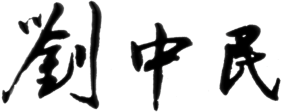 劉中民